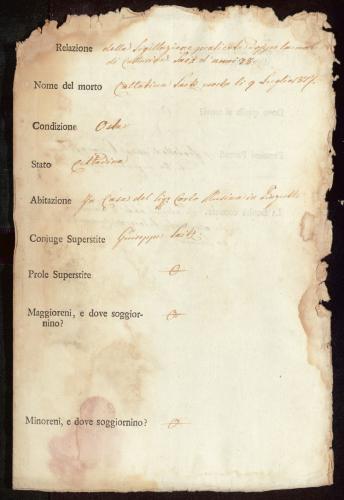 Relazione della Sigillazione praticata dopo la morte
di Cattarina Saitz d'anni 28.
Nome del morto Cattarina Saitz morta li 9 Luglio
Condizione Oste
Stato Cittadina
Abitazione In Casa del Sigr Carlo in
Conjuge Superstite Giuseppe Saitz
Prole Superstite
Maggioreni, e dove soggior-
nino?
Minoreni, e dove soggiornino?